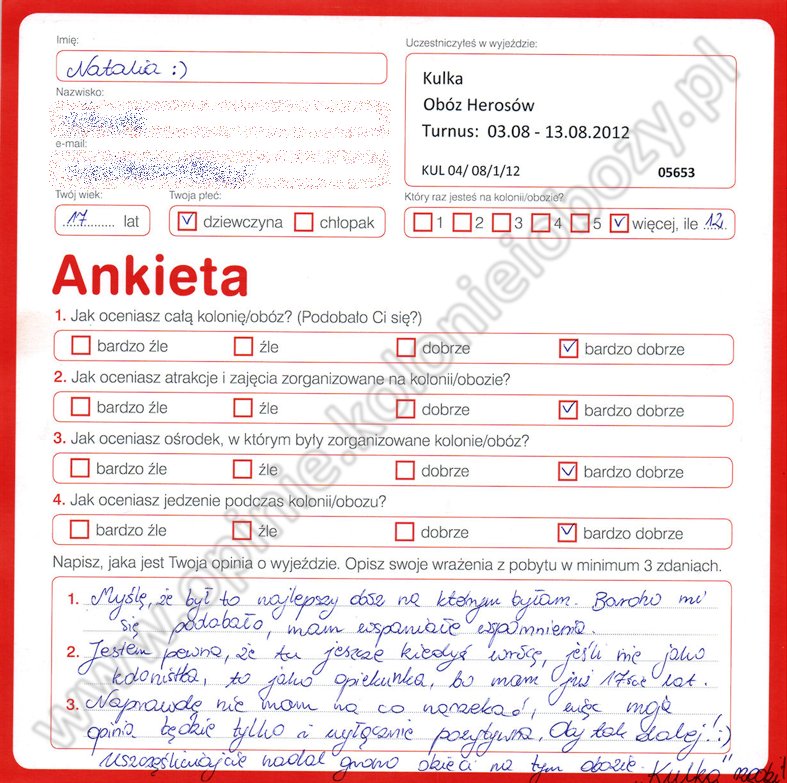 Imię:
Natalia :)
Nazwisko:
e-mail:
Twój wiek:
17 lat
Twoja płeć:
dziewczyna chłopak
Uczestniczyłeś w wyjeździe:
Kulka
Obóz Herosów
Turnus: 03.08 - 13.08.2012
KUL 04/ 08/1/12 05653
Który raz jesteś na kolonii/obozie?
1 2 3 4 5 więcej, ile 12
Ankieta
1. Jak oceniasz całą kolonię/obóz? (Podobało Ci się?)
bardzo źle źle dobrze bardzo dobrze
2. Jak oceniasz atrakcje i zajęcia zorganizowane na kolonii/obozie?
bardzo źle źle dobrze bardzo dobrze
3. Jak oceniasz ośrodek, w którym były zorganizowane kolonie/obóz?
bardzo źle źle dobrze bardzo dobrze
4. Jak oceniasz jedzenie podczas kolonii/obozu?
bardzo źle źle dobrze bardzo dobrze
Napisz, jaka jest Twoja opinia o wyjeździe. Opisz swoje wrażenia z pobytu w minimum 3 zdaniach.
1. Myślę, że był to najlepszy obóz na którym byłam. Bardzo mi
się podobało, mam wspaniałe wspomnienia.
2. Jestem pewna, że tu jeszcze kiedyś wrócę, jeśli nie jako
kolonistka, to jako opiekunka, bo mam już 17ście lat.
3. Naprawdę nie mam na co narzekać, więc moja
opinia będzie tylko i wyłącznie pozytywna. Oby tak dalej! :)
Uszczęśliwiajcie nadal grono dzieci na tym obozie. "Kulka" rządzi!
www.opinie.kolonieiobozy.pl